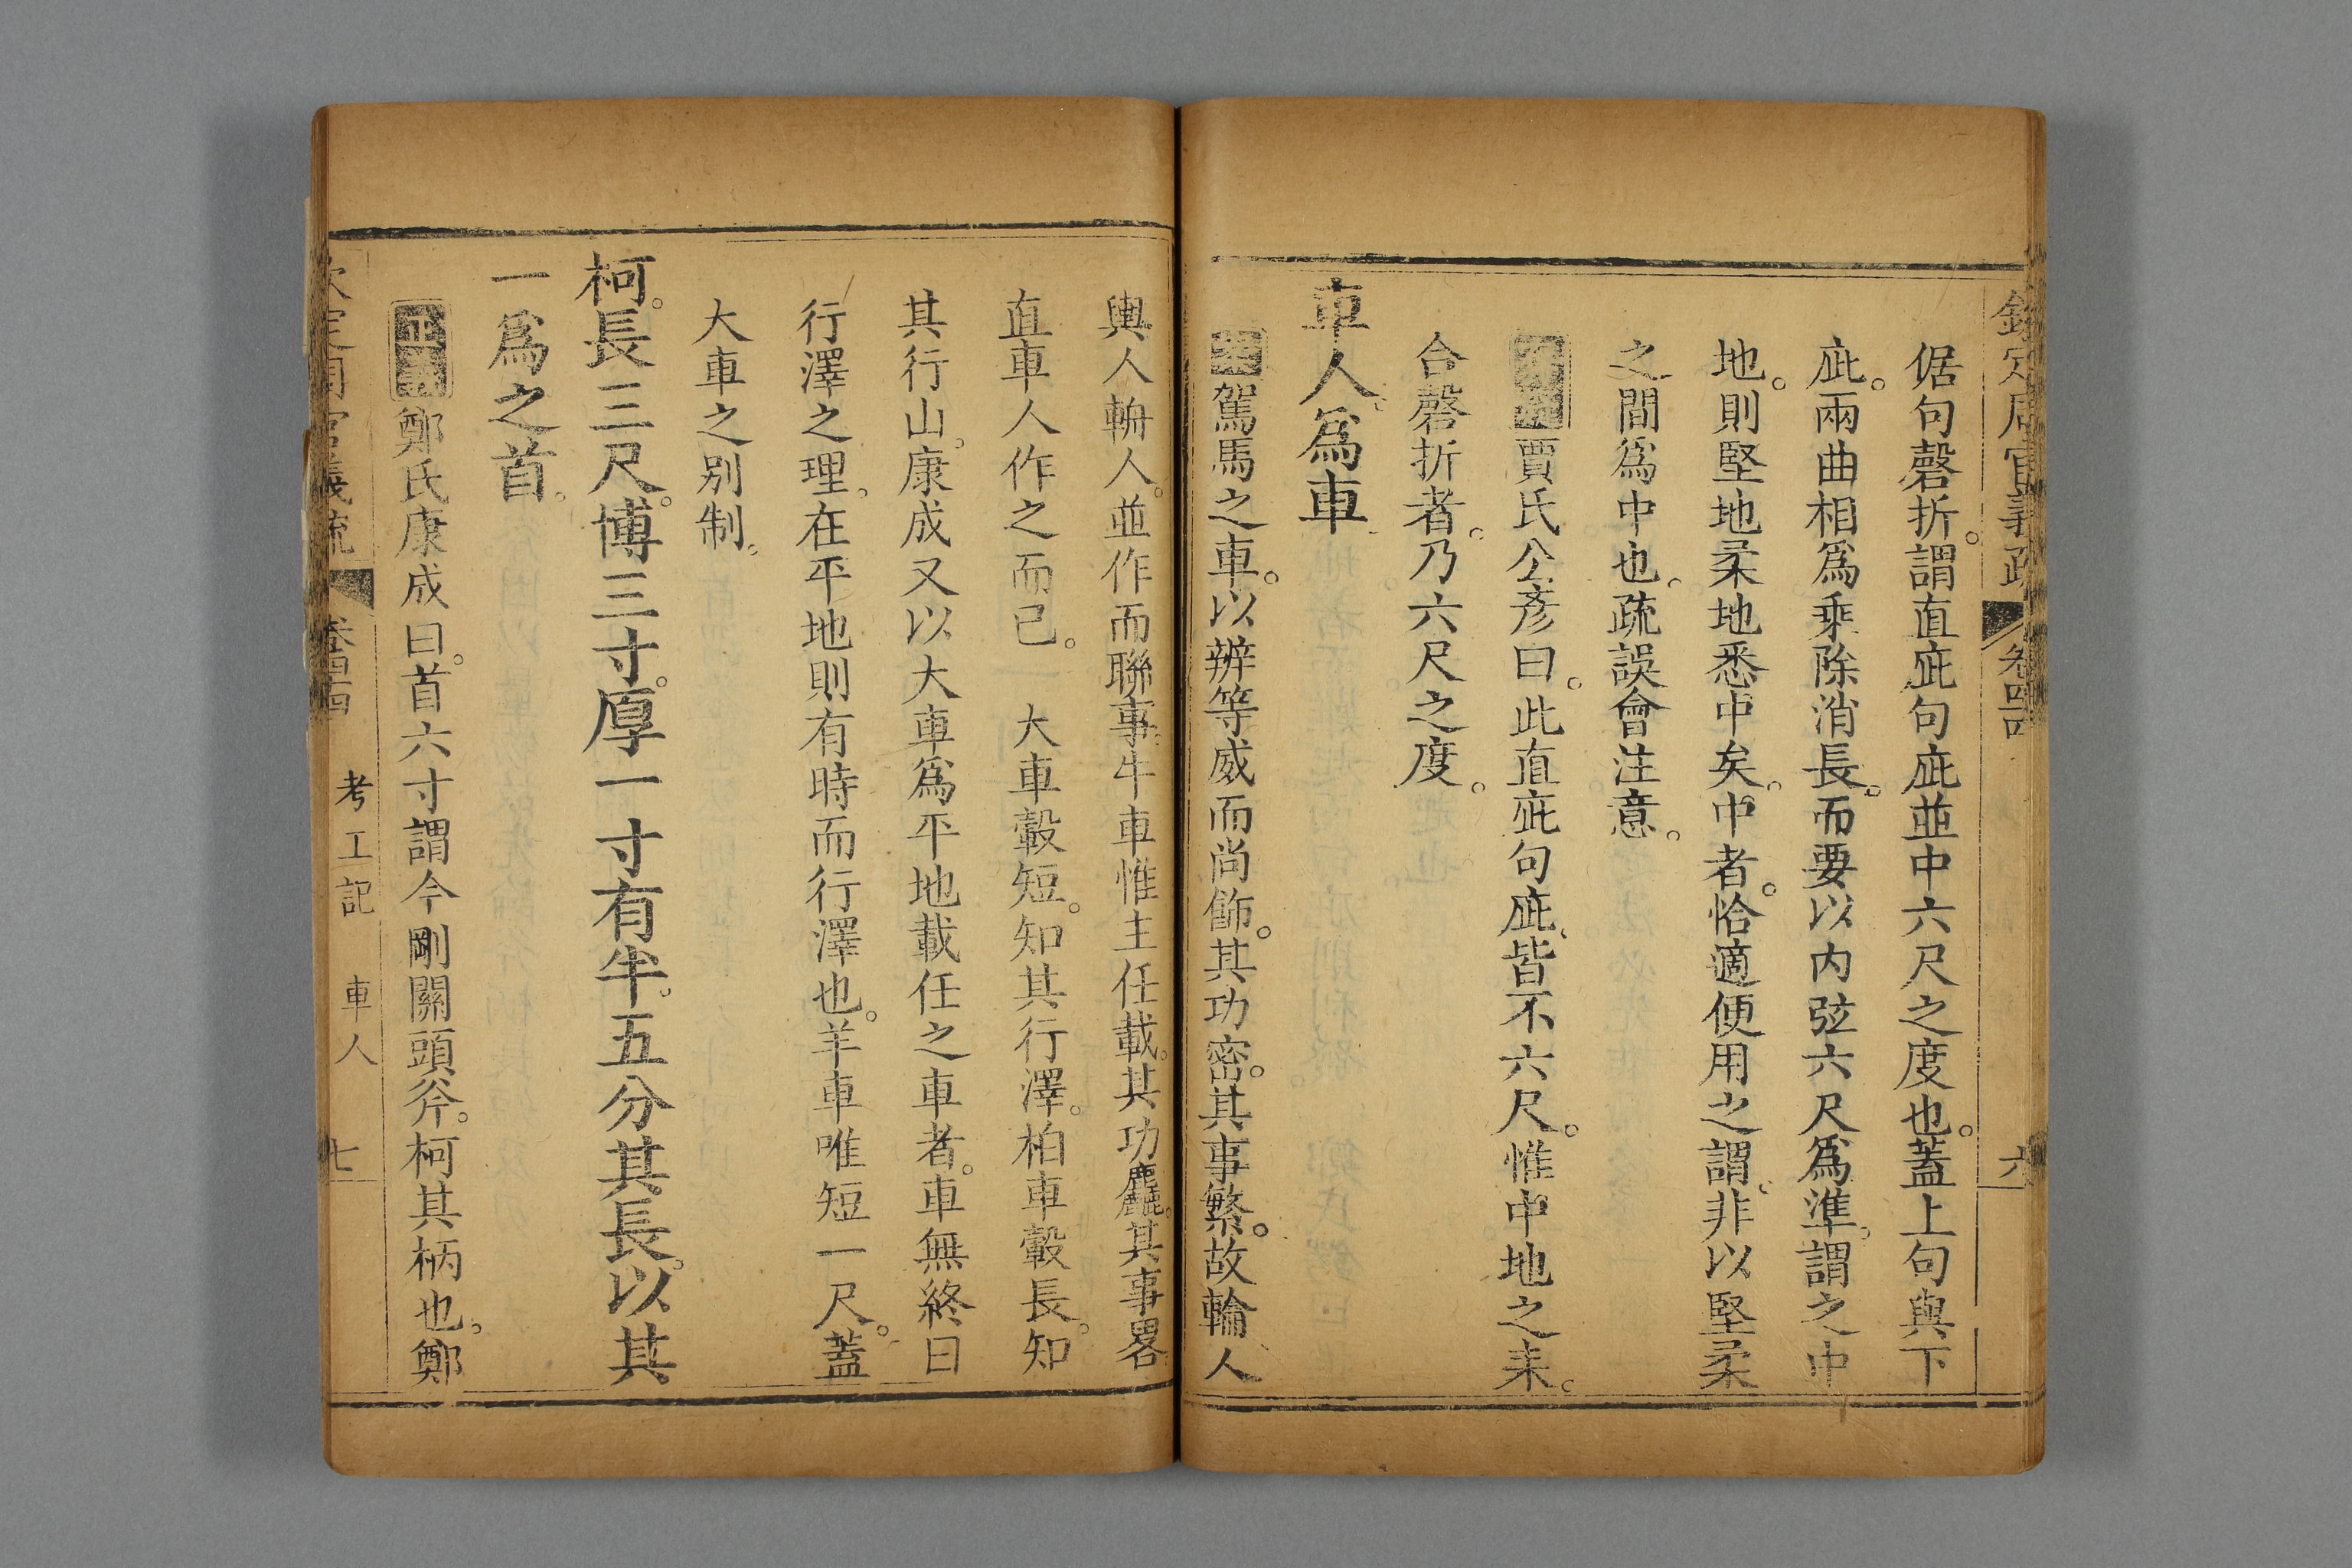 欽定周官義疏 卷四四 六
倨句磬折。謂直庛句庛並中六尺之度也。蓋上句與下
庛。兩曲相爲乘除消長。而要以内弦六尺爲準。謂之中
地。則堅地柔地悉中矣。中者。恰適便用之謂。非以堅柔
之間爲中也。疏誤會注意。
賈氏公彥曰。此直庛句庛。皆不六尺。惟中地之耒。
合磬折者。乃六尺之度。
車人爲車
駕馬之車。以辨等威而尚飾。其功密。其事繁。故輪人
輿人輈人。並作而聯事。牛車惟主任載。其功麤。其事畧
直車人作之而已。 大車轂短。知其行澤。柏車轂長。知
其行山。康成又以大車爲平地載任之車者。車無終日
行澤之理。在平地則有時而行澤也。羊車唯短一尺。蓋
大車之别制。
柯。長三尺。博三寸。厚一寸有半。五分其長。以其
一爲之首。
正義鄭氏康成曰。首六寸謂今剛關頭斧。柯其柄也。鄭
欽定周官義疏 卷四四 考工記 車人 七